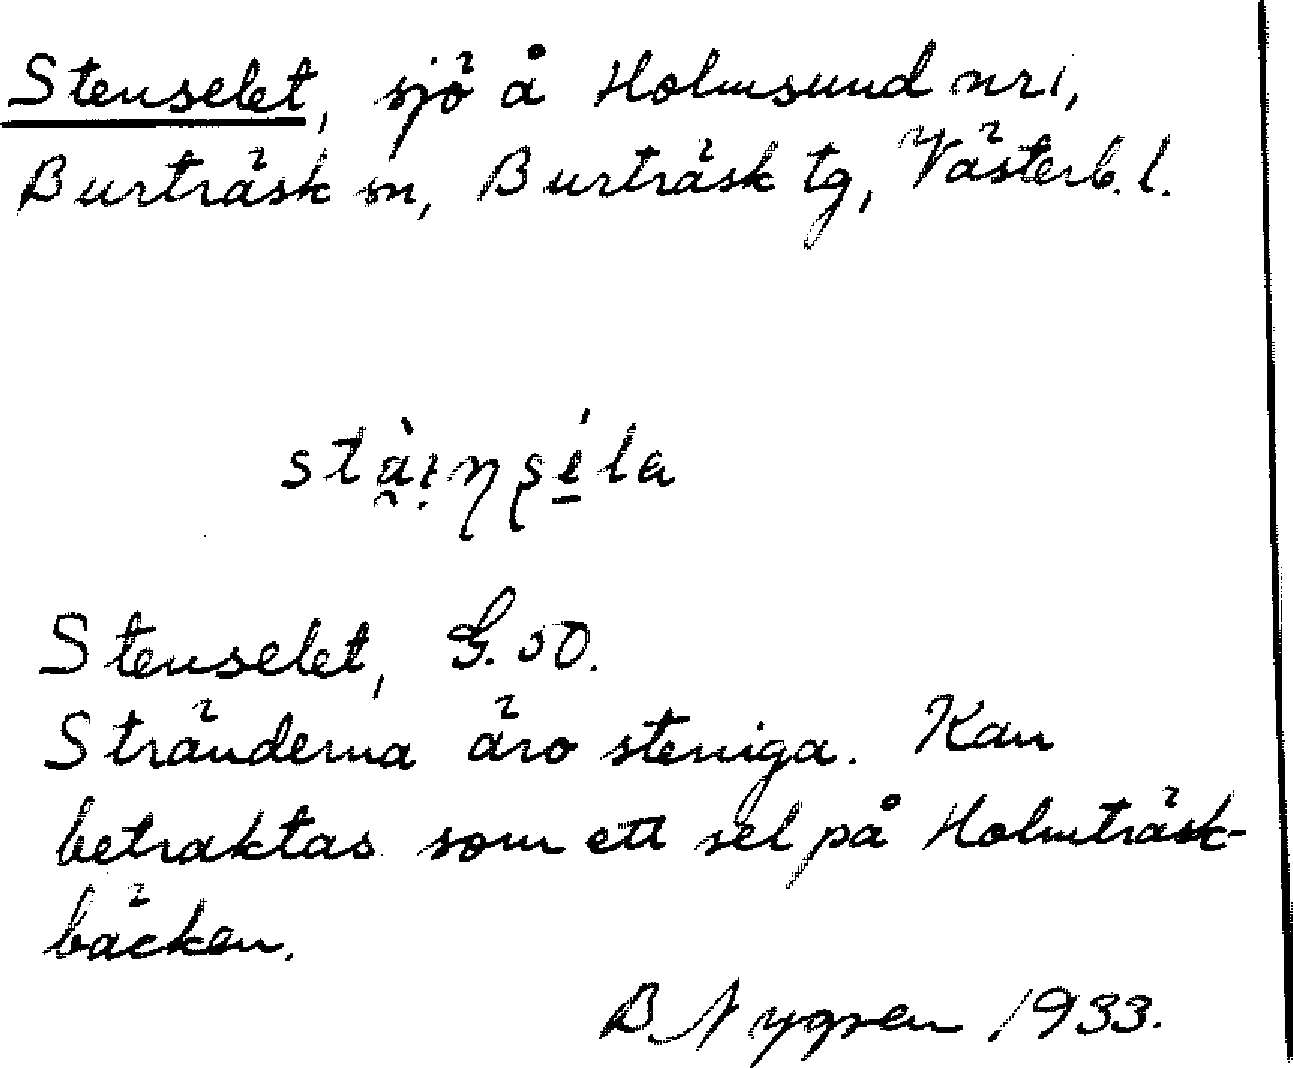 Stenselet, sjö å Holmsund nr 1,
Burträsk sn, Burträsk tg, Västerb. l.
Stenselet, G. 50.
Stränderna äro steniga. Kan
betraktas som ett sel på Holmträsk-
bäcken.
B Nygren 1933.